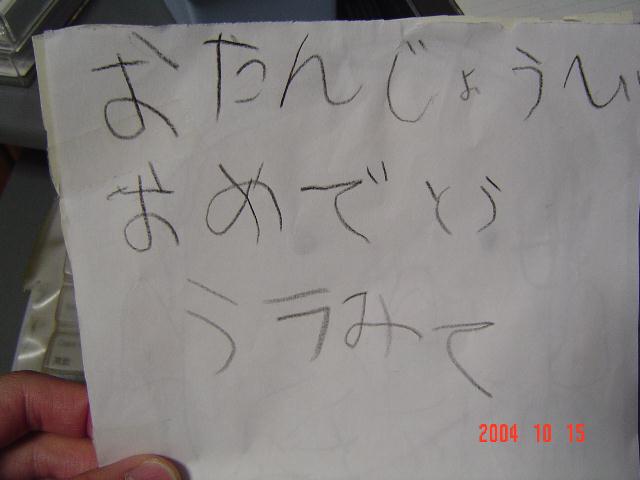 おたんじょうひ
おめでとう
うラみて
2004 10 15